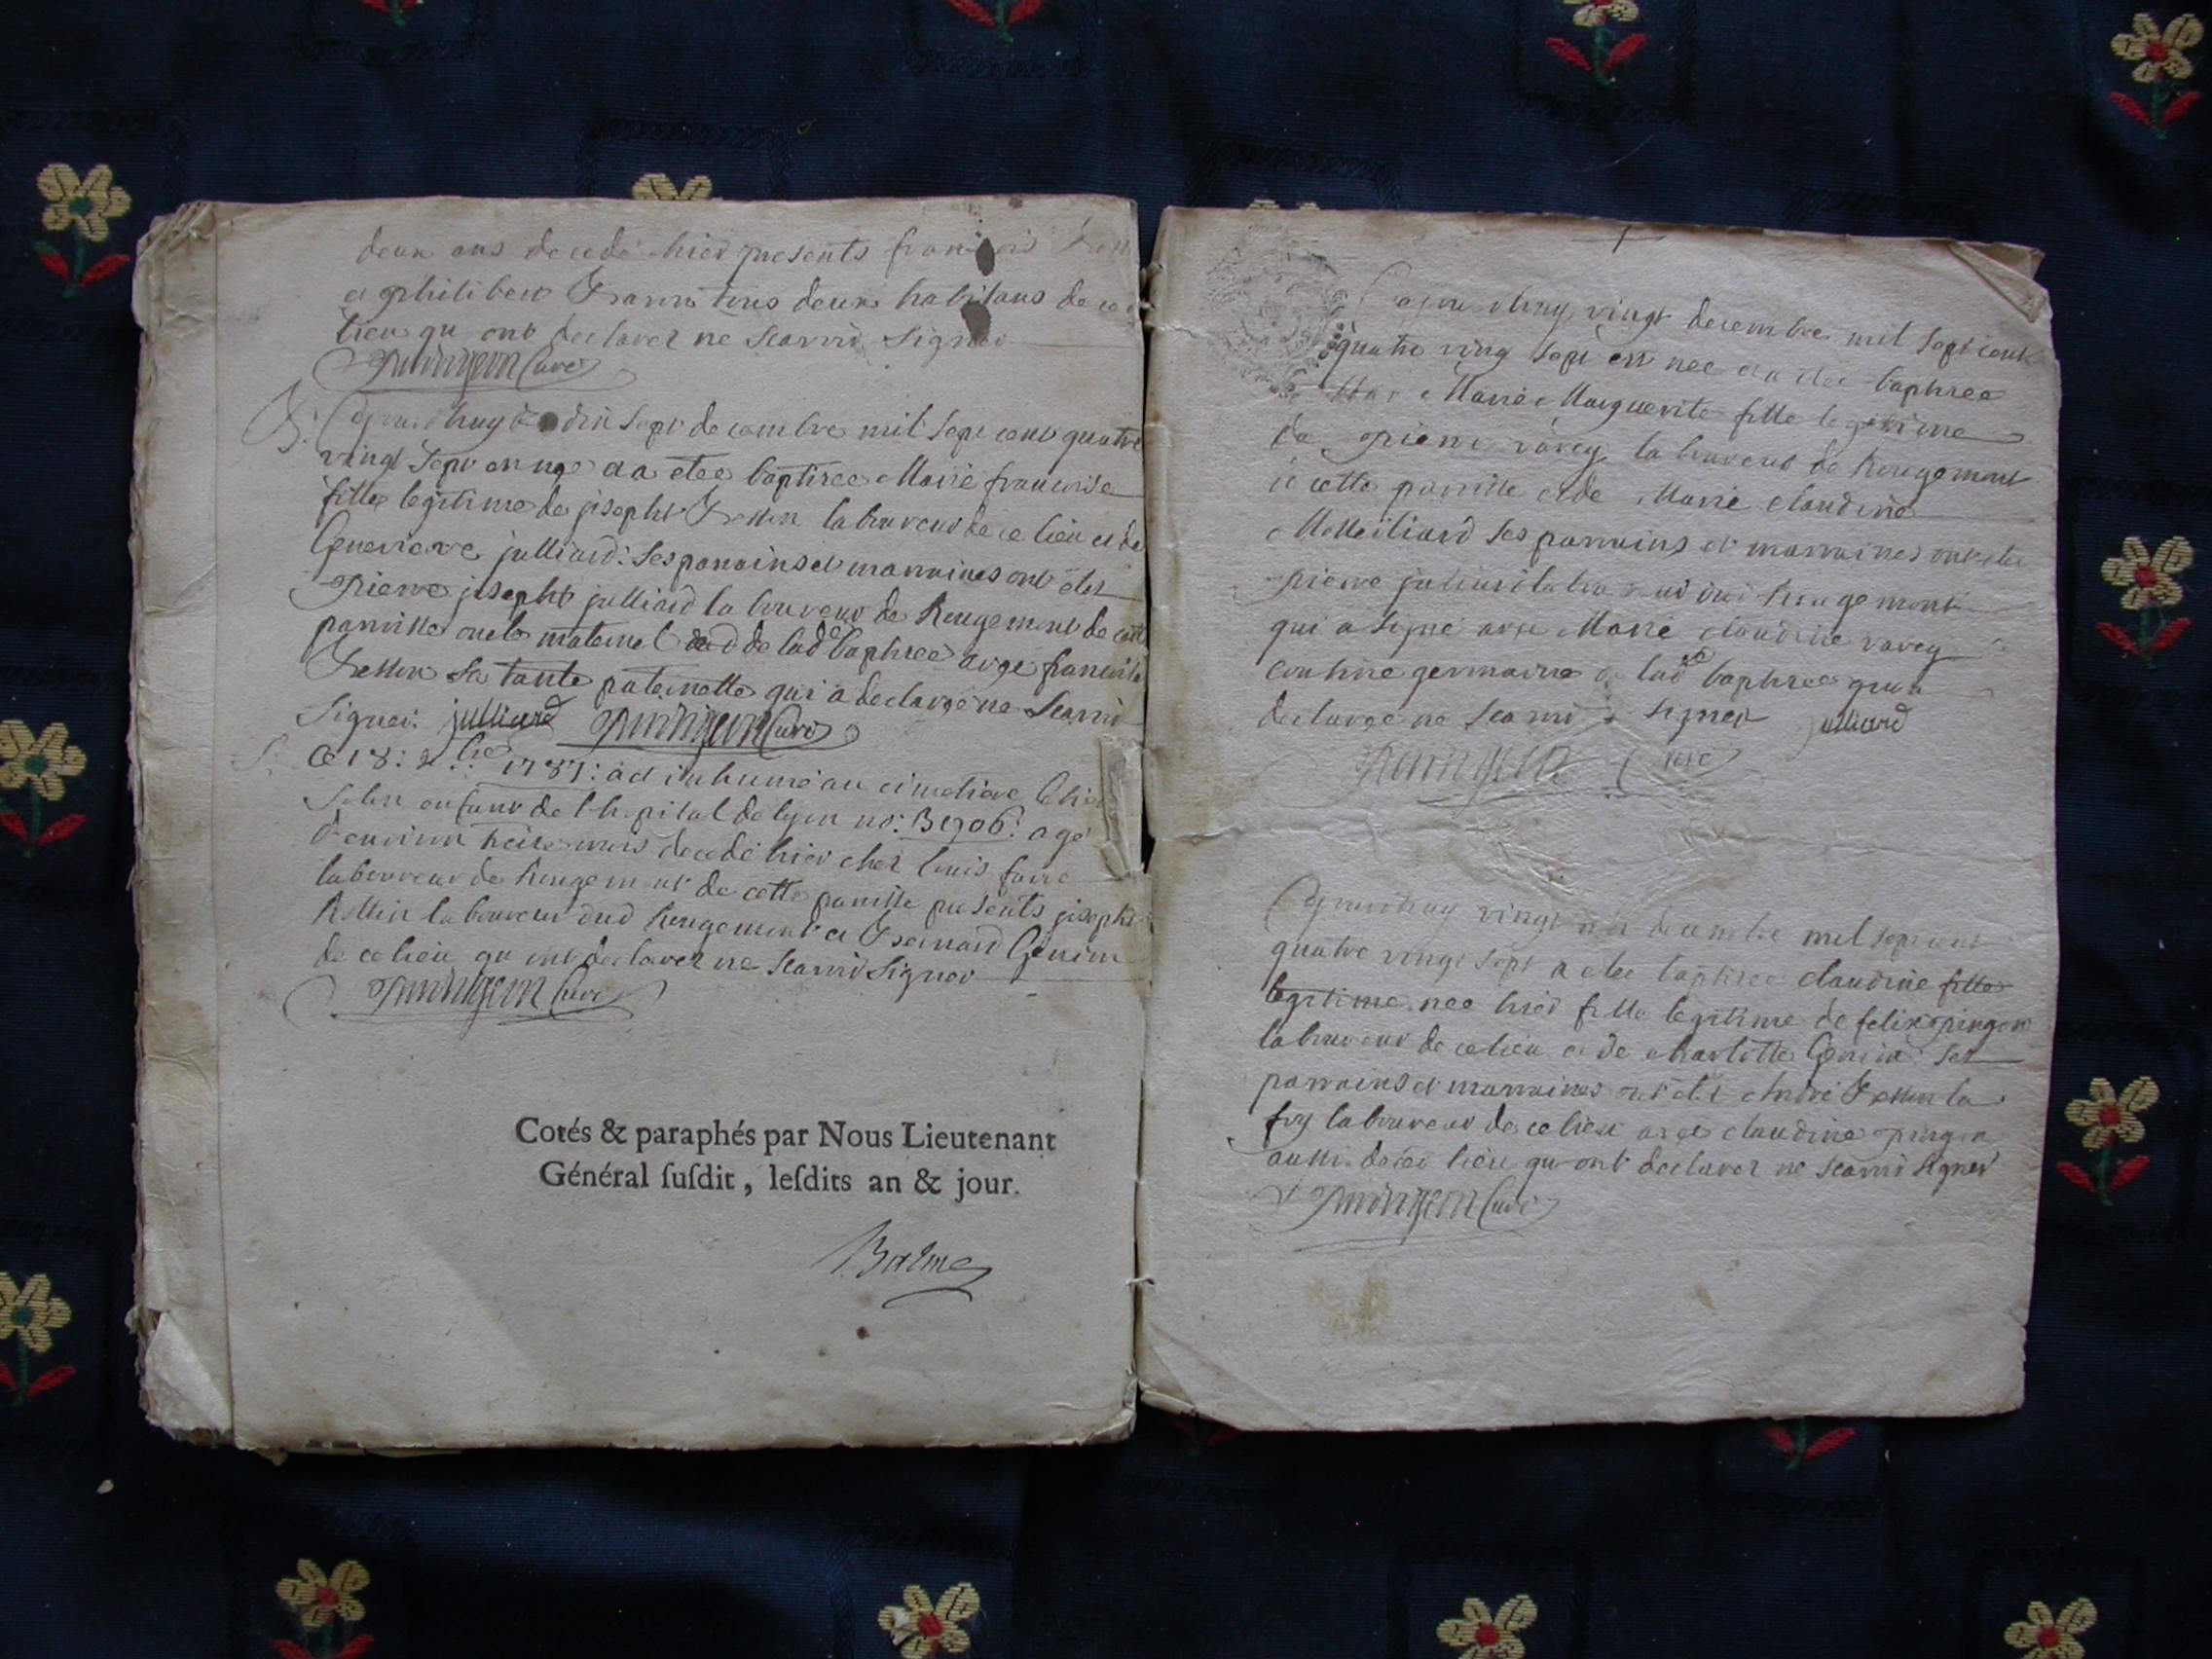 deux ans decedé hier presents francois
et philibert tous deux habitans de ce
lieu qu ont declarer ne scavoir signer
curé
B: Cejourdhuy dix sept decembre mil sept cent quatre
vingt sept a etee baptisee Marie francoise
fille legitime de joseph laboureur de ce lieu et de
Genevieve julliard: ses parrains et marraines ont etes
pierre joseph julliard laboureur de Rougemont de cette
parroisse oncle maternel de lade baptisee avec francoise
sa tante paternelle qui a declaree ne scavoir
signer. julliard curé
S: Ce 18: 1787: a eté inhumé au cimetiere
enfant de l hopital de lyon no: agé
d'environ mois decedé hier chez louis favre
laboureur de Rougemont de cette parroisse presents joseph
laboureur dud Rougemont et Genin
de ce lieu qu ont declarer ne scavoir signer
curé
Cotés & paraphés par Nous Lieutenant
Général ſuſdit, leſdits an & jour.
Balme
Cejourdhuy vingt decembre mil sept cent
quatre ving sept est nee et a etee baptisee
Marie Marguerite fille legitime
de pierre varey laboureur de Rougemont
de cette parroisse et de Marie claudine
ses parrains et marraines ont etes
pierre julliard laboureur dud Rougemont
qui a signé avec Marie claudine varey
cousine germaine de lade baptisee qui a
declaree ne scavoir signer julliard
curé
Cejourdhuy vingt decembre mil sept cent
quatre vingt sept a etee baptisee claudine fille
legitime nee hier fille legitime de felix pingon
laboureur de ce lieu et de charlotte Genin: ses
parrains et marraines ont eté andré
laboureur de ce lieu avec claudine pingon
aussi de ce lieu qu ont declarer ne scavoir signer
curé